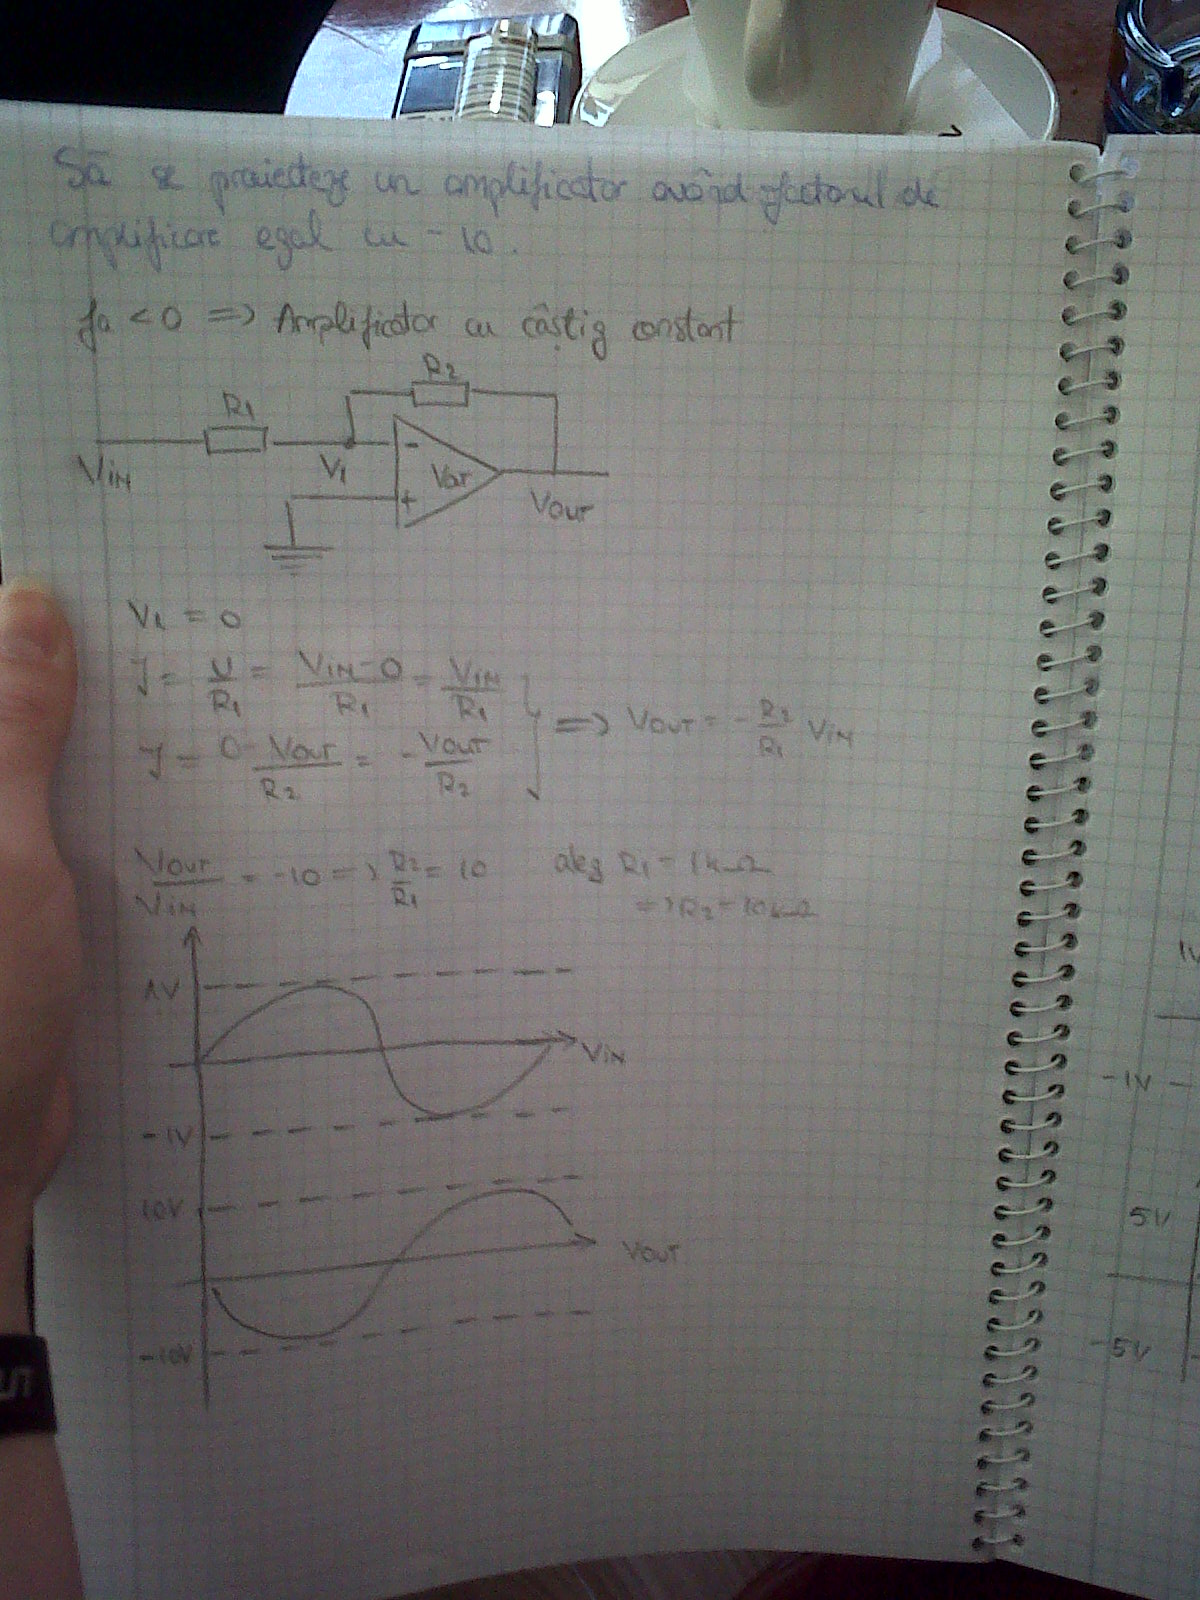 Să se proiecteze un amplificator având factorul de
amplificare egal cu -10.
fa < 0 => Amplificator cu câștig constant
R2
R1
VIN
V1
-
+
VOUT
V1 = 0
I = V/R1 = (VIN-0)/R1 = VIN/R1
I = (0-VOUT)/R2 = -VOUT/R2
=> VOUT = -R2/R1 VIN
VOUT/VIN = -10 => R2/R1 = 10 aleg R1 = 1kΩ
=> R2 = 10kΩ
1V
VIN
-1V
10V
VOUT
-10V
1V
-1V
5V
-5V